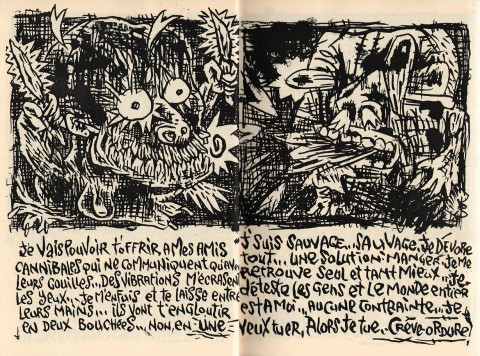 Je vais pouvoir t'offrir a mes amis
cannibales qui ne communiquent qu'avec
leurs couilles... des vibrations m'écrasent
les yeux... je m'enfuis et te laisse entre
leurs mains... ils vont t'engloutir
en deux bouchées... non, en une
J suis sauvage... sauvage. Je dévore
tout... une solution: manger. Je me
retrouve seul et tant mieux... Je
déteste les gens et le monde entier
est à moi... aucune contrainte... je
veux tuer, alors je tue.. Crève ordure!